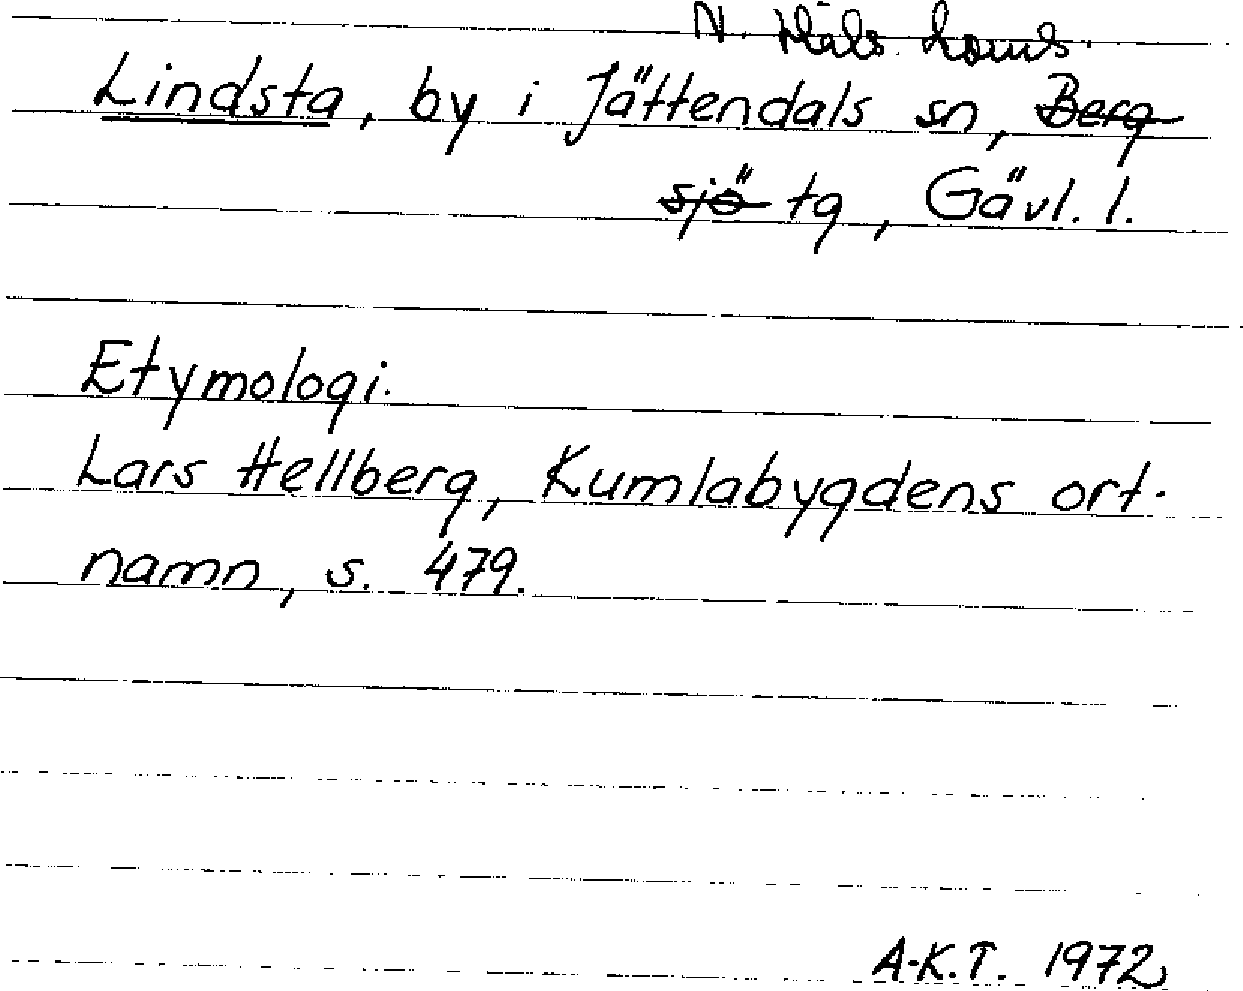 N. Häls. doms.
Lindsta, by i Jättendals sn, Berg
sjö tg, Gävl. l.
Etymologi.
Lars Hellberg, Kumlabygdens ort-
namn, s. 479.
A-K.T. 1972